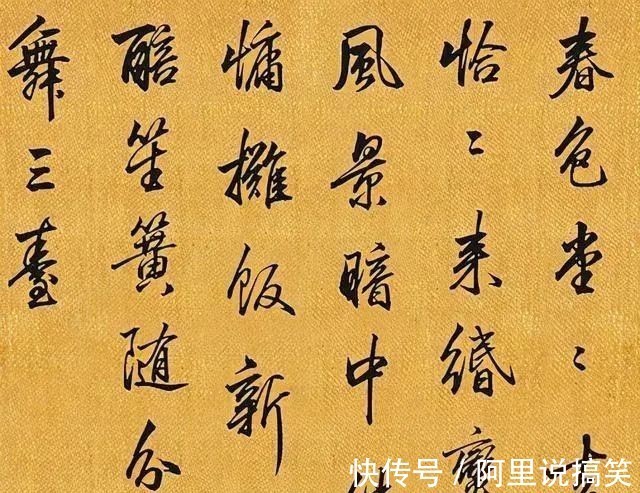 春色堂〻
恰〻来
風景暗中
慵飯新
醅笙簧随分
舞三臺
快传号 / 阿里说搞笑